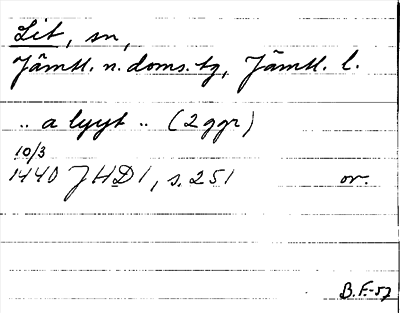 Lit, sn,
Jämtl. n. doms. tg, Jämtl. l.
.. a lyyt .. (2 ggr)
10/3
1440 JHD 1, s. 251 or.
B.F.-57